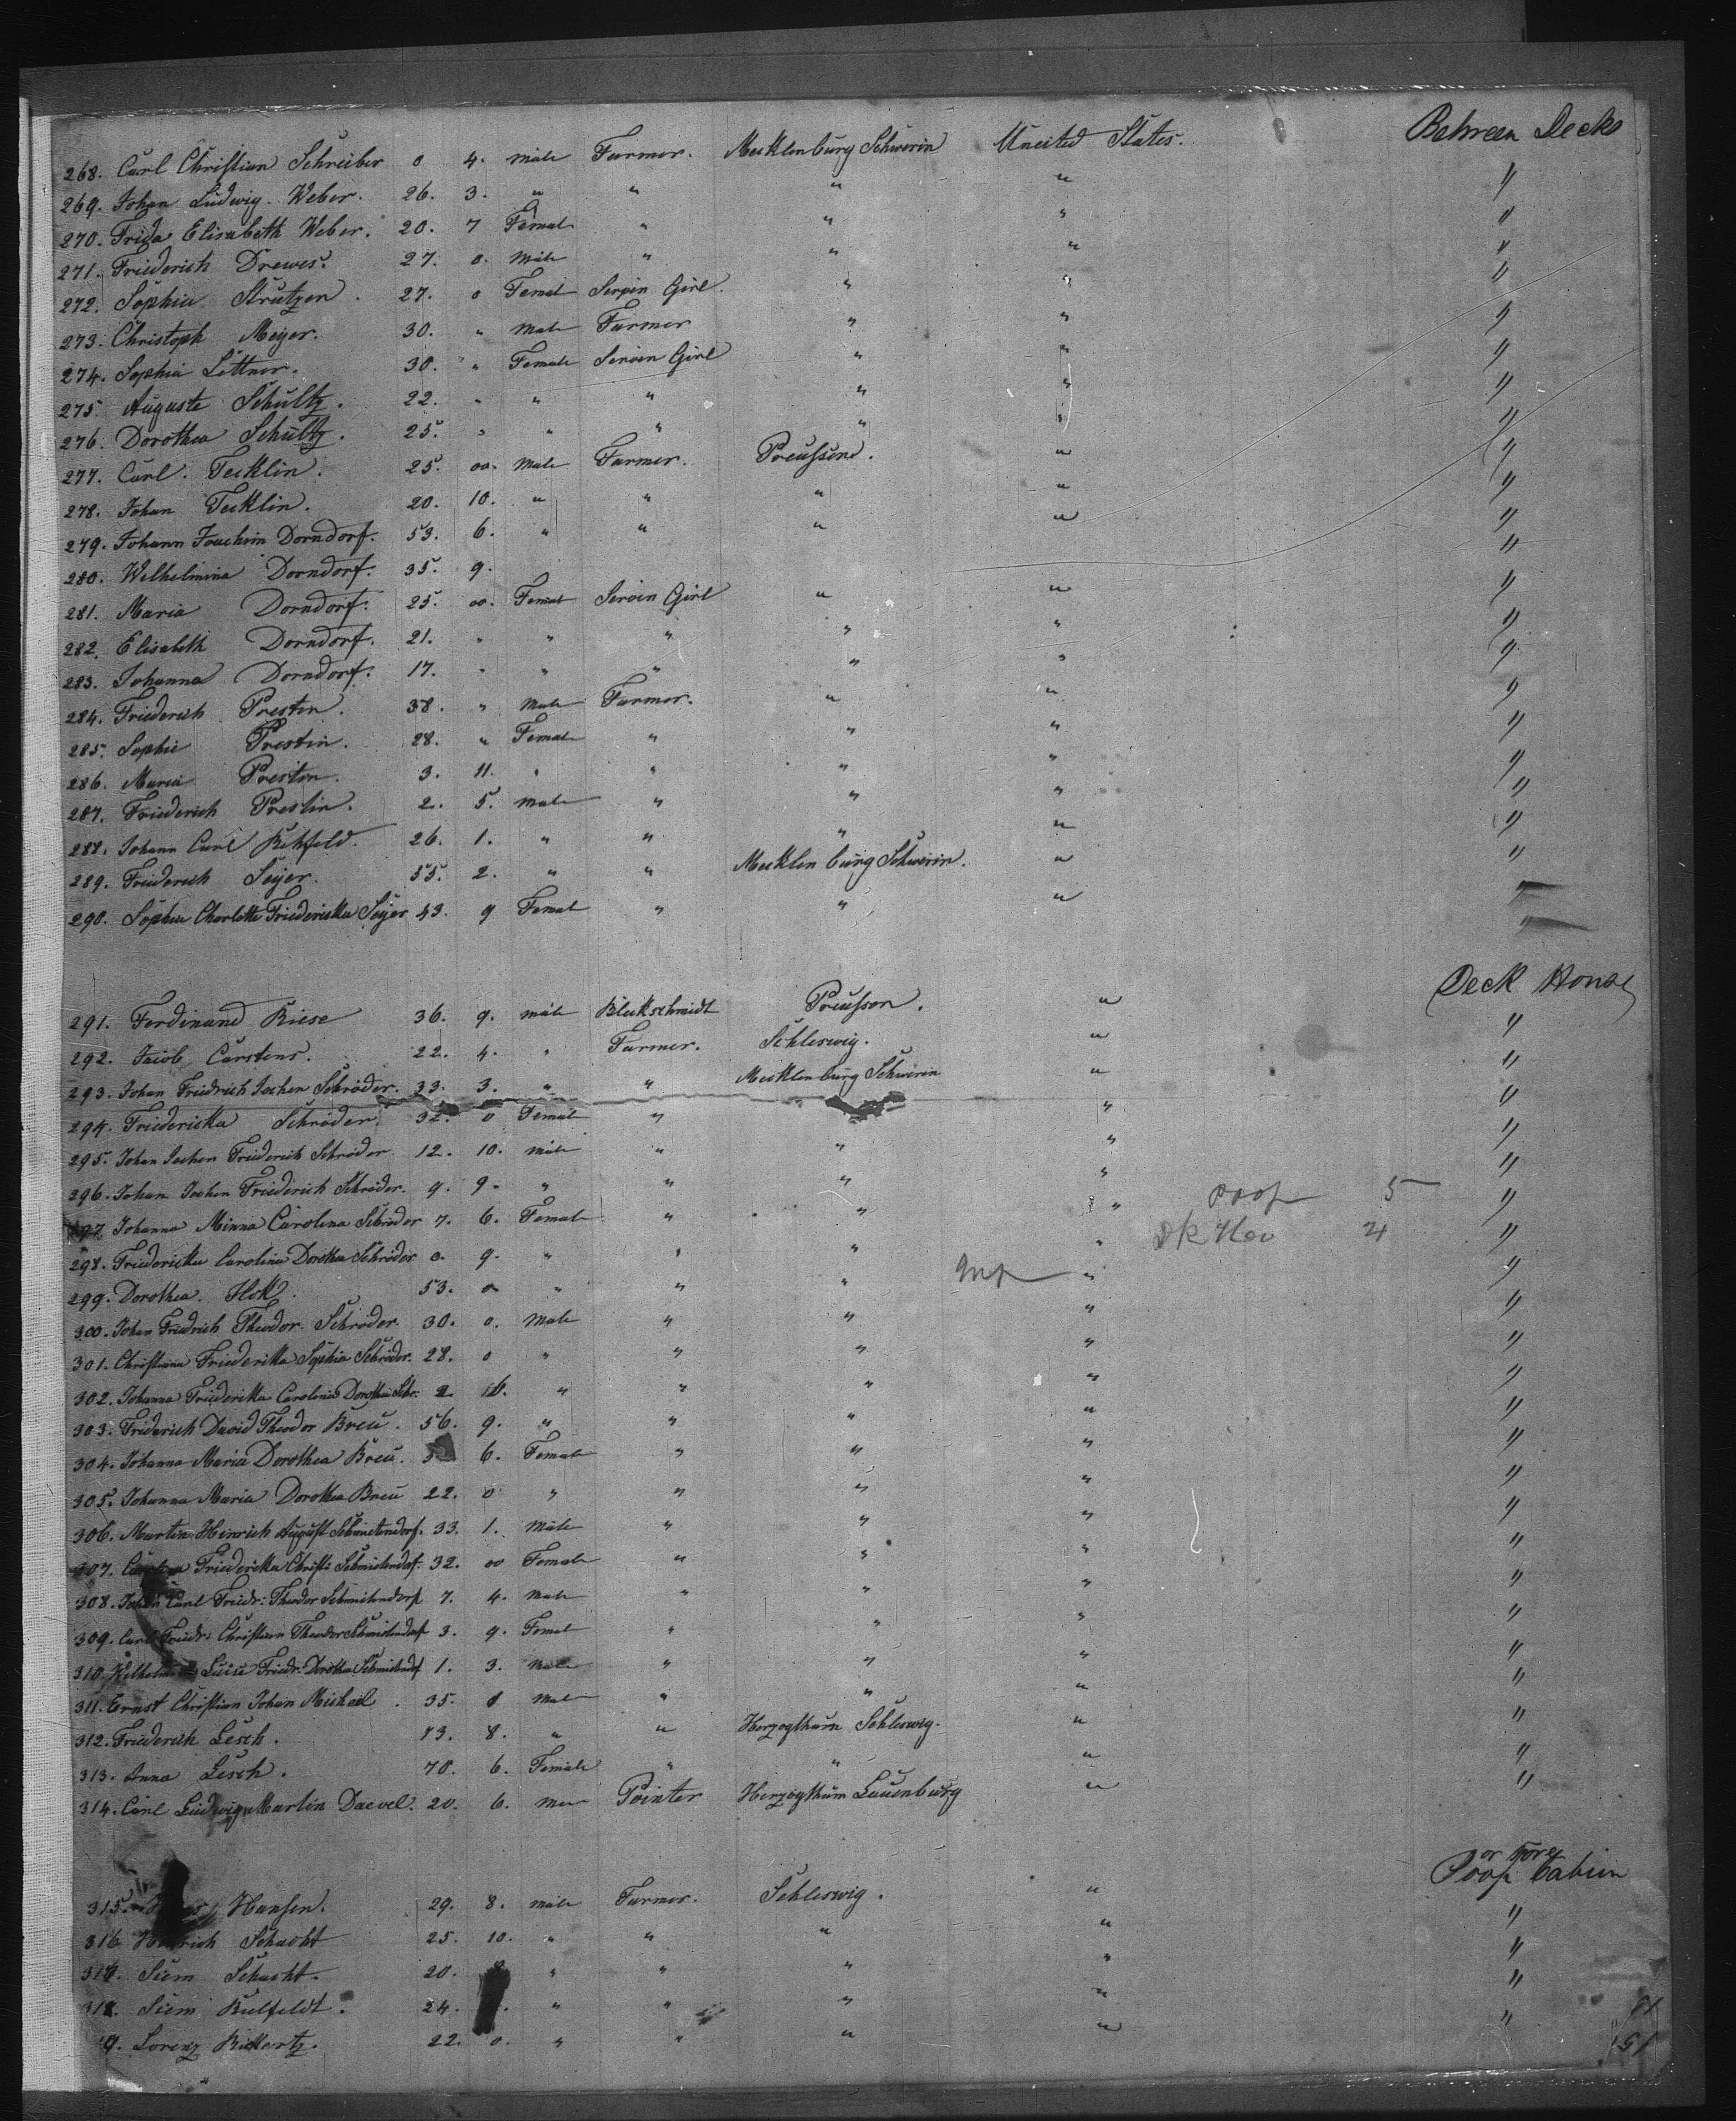 Between Decks
268. Carl Christian Schreiber 0 4. male Farmer. Mecklenburg Schwerin Uneited States.
269. Johan Ludwig Weber. 26. 3. " " " " "
270. Frida Elisabeth Weber. 20. 7 Femal " " " "
271. Friederich Drewes. 27. 0. Male " " " "
272. Sophia Strutzen. 27. 0 Femal Servin Girl. " " "
273. Christoph Meyer. 30. " Male Farmer " " "
274. Sophia Lettner. 30. " Female Servin Girl " " "
275. Auguste Schultz. 22. " " " " " "
276. Dorothea Schultz. 25. " " " " " "
277. Carl. Tecklin. 25. oo. Male Farmer. Preussend. " "
278. Johan Tecklin. 20. 10. " " " " "
279. Johann Joachim Dorndorf. 53. 6. " " " " "
280. Wilhelmina Dorndorf. 35. 9. "
281. Maria Dorndorf. 25. oo. Femal Servin Girl " " "
282. Elisabeth Dorndorf. 21. " " " " " "
283. Johanna Dorndorf. 17. " " " " " "
284. Friederich Prestin. 38. " Male Farmer. " " "
285. Sophie Prestin. 28. " Female " " " "
286. Maria Prestin. 3. 11. " " " " "
287. Friederich Prestin. 2. 5. Male " " " "
288. Johann Carl Rehfeld. 26. 1. " " " " "
289. Friederich Seyer. 55. 2. " " Mecklenburg Schwerin. " "
290. Sophia Charlotte Friedericka Seyer 43. 9 Femal " " " "
Deck House
291. Ferdinand Riese 36. 9. male Bleckschmidt Preussen. " "
292. Jacob Carstens. 22. 4. " Farmer. Schleswig. " "
293. Johan Friedrich Jochen Schröder. 33. 3. " " Mecklenburg Schwerin " "
294. Friedericka Schröder. 32. 0 Femal " " "
295. Johan Jochen Friederich Schröder. 12. 10. male " " " "
296. Johan Jochen Friederich Schröder. 9. 9. " " " " "
297. Johanna Minna Carolina Schröder 7. 6. Femal " " " poop 5 "
298. Friedericka Carolina Dorothea Schröder 0. 9. " " " " Dk Hou 24 "
299. Dorothea. 53. 0 " " " " "
300. Johan Friedrich Theodor Schröder. 30. 0. Male " " " "
301. Christiana Friedericka Sophia Schröder. 28. 0 " " " " "
302. Johanna Friedericka Carolina Dorothea Schr: 2. " " " " "
303. Friderich David Theodor Breu. 56. 9. " " " " "
304. Johanna Maria Dorothea Breu. 5 6. Female " " " "
305. Johanna Maria Dorothea Breu 22. 0 " " " " "
306. Martin Hinrich August Schmietendorf. 33. 1. Male " " " "
307. Friedericka Christi: Schmietendorf. 32. oo Female " " " "
308. Johan Carl Friedr: Theodor Schmietendorf 7. 4. Male " " " "
309. Carl Friedr: Christian Theodor Schmietendorf 3. 9. Femal " " " "
310. Luise Friedr: Dorothea Schmietendorf 1. 3. Male " " " "
311. Ernst Christian Johan Misheel. 35. Male " " " "
312. Friederich Lesch. 73. 8. " " Herzogthum Schleswig. " "
313. Anna Lesch. 70. 6. Female " " " "
314. Carl Ludwig Martin Daevel. 20. 6. Pointer Herzogthum Lauenburg " "
or fore
Poop Cabin
315. Hansen. 29. 8. male Farmer. Schleswig. " "
316 Hinrich Schacht 25. 10. " " " " "
317. Siem Schacht. 20. " " " " "
318. Siem Kulfeldt. 24. " " " " "
9. Lorenz Rickertz. 22. 0. " " " "